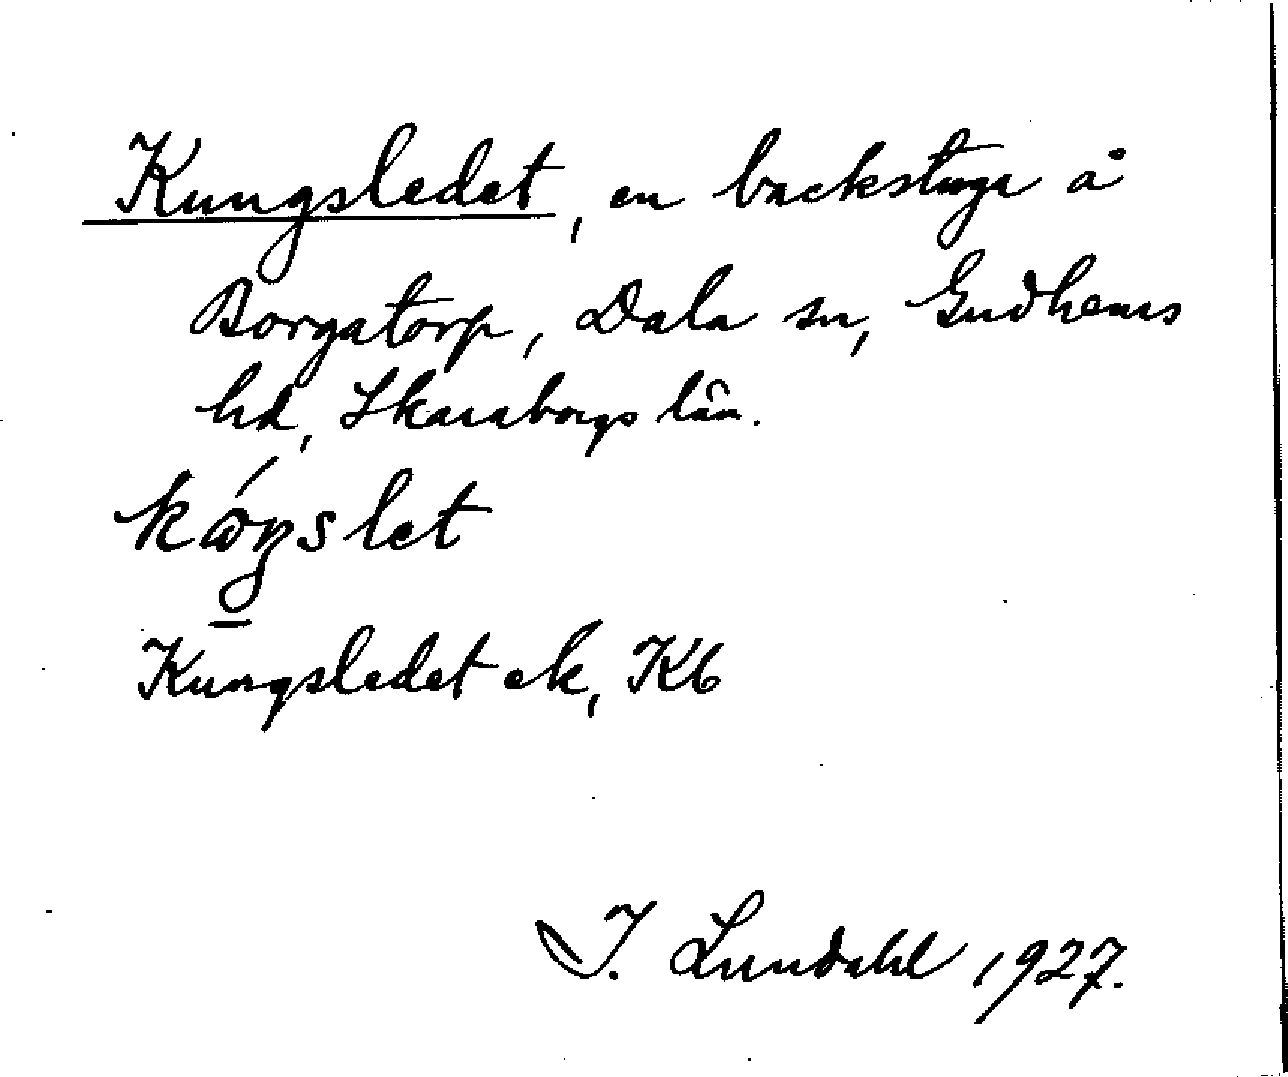 Kungsledet, en backstuga å
Borgatorp, Dala sn, Gudhems
hd, Skaraborgs län.
Kungsledet ek, Kb
I. Lundahl 1927.